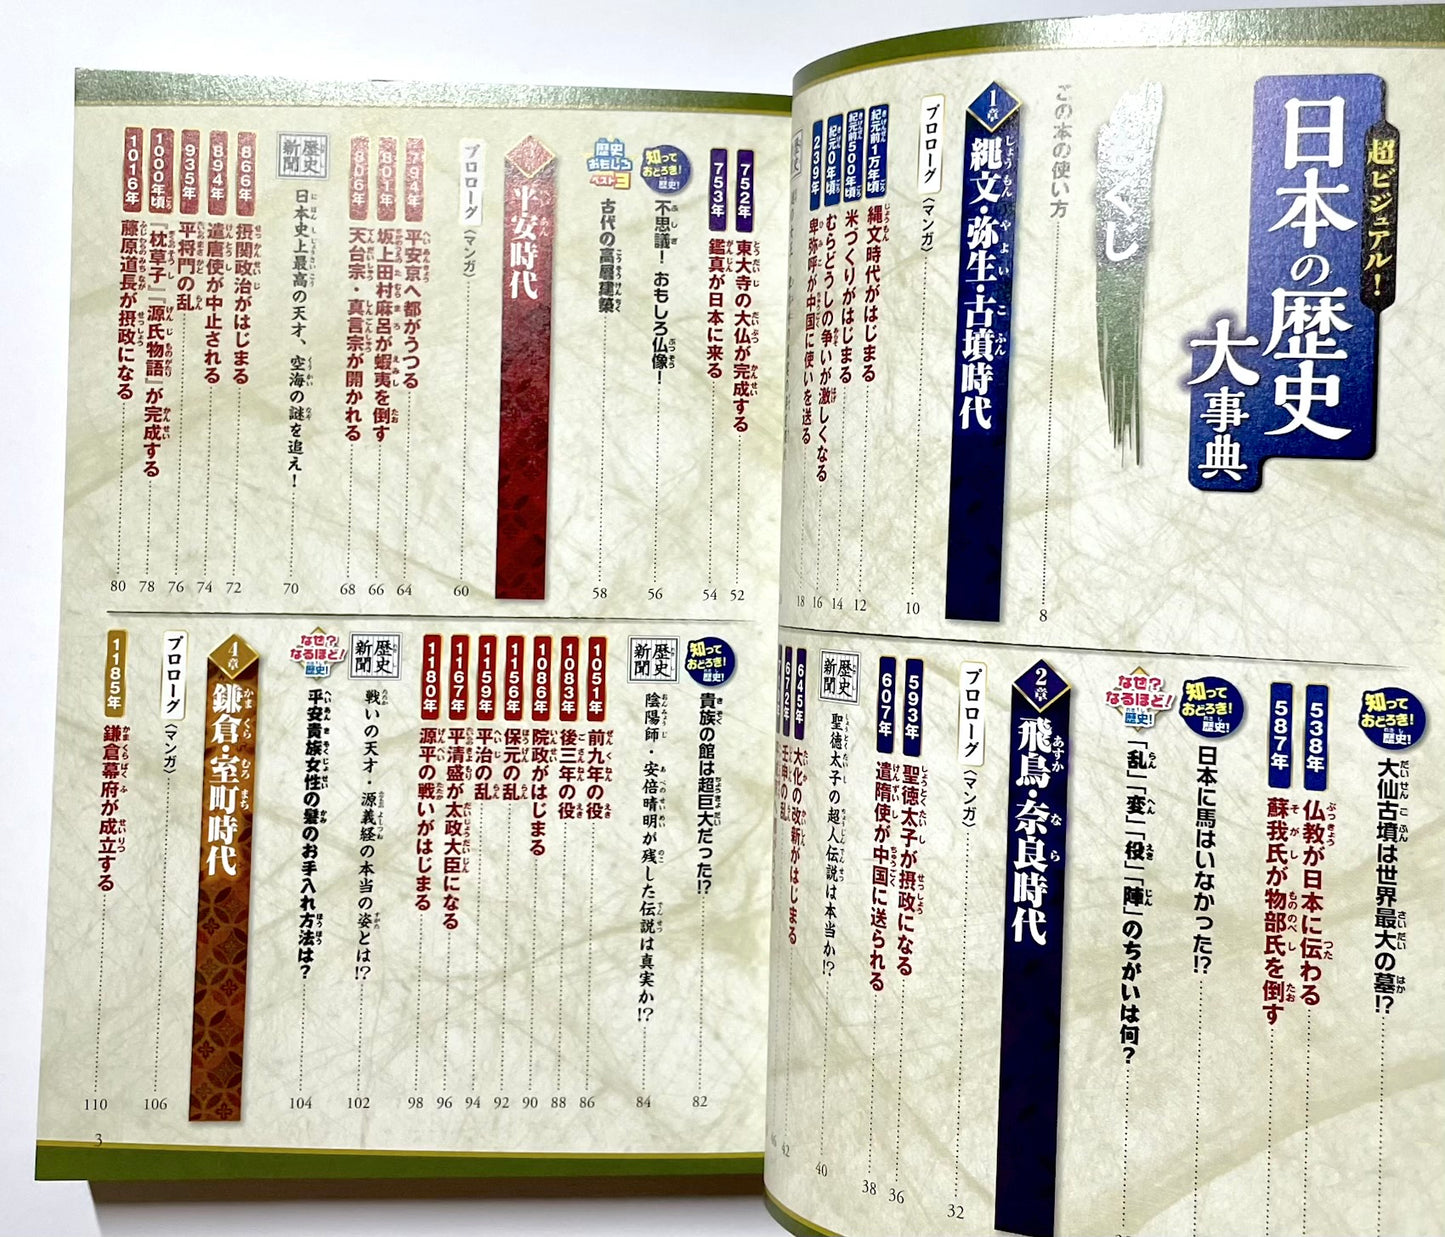 超ビジュアル！
日本の歴史
大事典
くじ
この本の使い方 8
1章 縄文・弥生・古墳時代
プロローグ〈マンガ〉 10
紀元前1万年頃 縄文時代がはじまる 12
紀元前500年頃 米づくりがはじまる 14
紀元0年頃 むらどうしの争いが激しくなる 16
239年 卑弥呼が中国に使いを送る 18
知っておどろき！歴史！ 大仙古墳は世界最大の墓!?
538年 仏教が日本に伝わる
587年 蘇我氏が物部氏を倒す
知っておどろき！歴史！ 日本に馬はいなかった!?
なぜ？なるほど！歴史！ 「乱」「変」「役」「陣」のちがいは何？
2章 飛鳥・奈良時代
プロローグ〈マンガ〉 32
593年 聖徳太子が摂政になる 36
607年 遣隋使が中国に送られる 38
歴史新聞 聖徳太子の超人伝説は本当か!? 40
645年 大化の改新がはじまる 42
672年 壬申の乱
752年 東大寺の大仏が完成する 52
753年 鑑真が日本に来る 54
知っておどろき！歴史！ 不思議！おもしろ仏像！ 56
歴史おもしろベスト3 古代の高層建築 58
平安時代
プロローグ〈マンガ〉 60
794年 平安京へ都がうつる 64
801年 坂上田村麻呂が蝦夷を倒す 66
806年 天台宗・真言宗が開かれる 68
歴史新聞 日本史上最高の天才、空海の謎を追え！ 70
866年 摂関政治がはじまる 72
894年 遣唐使が中止される 74
935年 平将門の乱 76
1000年頃 『枕草子』『源氏物語』が完成する 78
1016年 藤原道長が摂政になる 80
知っておどろき！歴史！ 貴族の館は超巨大だった!? 82
歴史新聞 陰陽師・安倍晴明が残した伝説は真実か!? 84
1051年 前九年の役 86
1083年 後三年の役 88
1086年 院政がはじまる 90
1156年 保元の乱 92
1159年 平治の乱 94
1167年 平清盛が太政大臣になる 96
1180年 源平の戦いがはじまる 98
歴史新聞 戦いの天才・源義経の本当の姿とは!? 102
なぜ？なるほど！歴史！ 平安貴族女性の髪のお手入れ方法は？ 104
4章 鎌倉・室町時代
プロローグ〈マンガ〉 106
1185年 鎌倉幕府が成立する 110
3